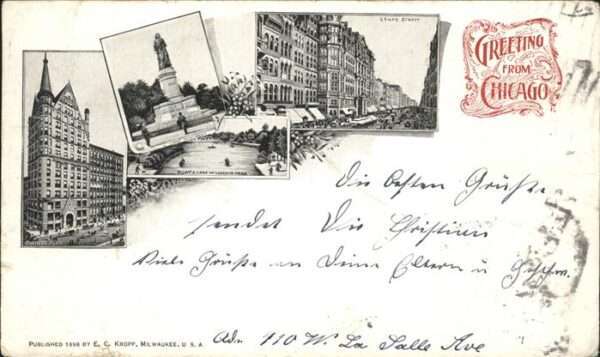 STATE STREET
GREETING
FROM
CHICAGO
Die besten Grüße
sendet Dir Christine
Viele Grüße an Deine Eltern u
PUBLISHED 1898 BY E. C. KROPP, MILWAUKEE, U. S. A.
Adr. 110 W. La Salle Ave